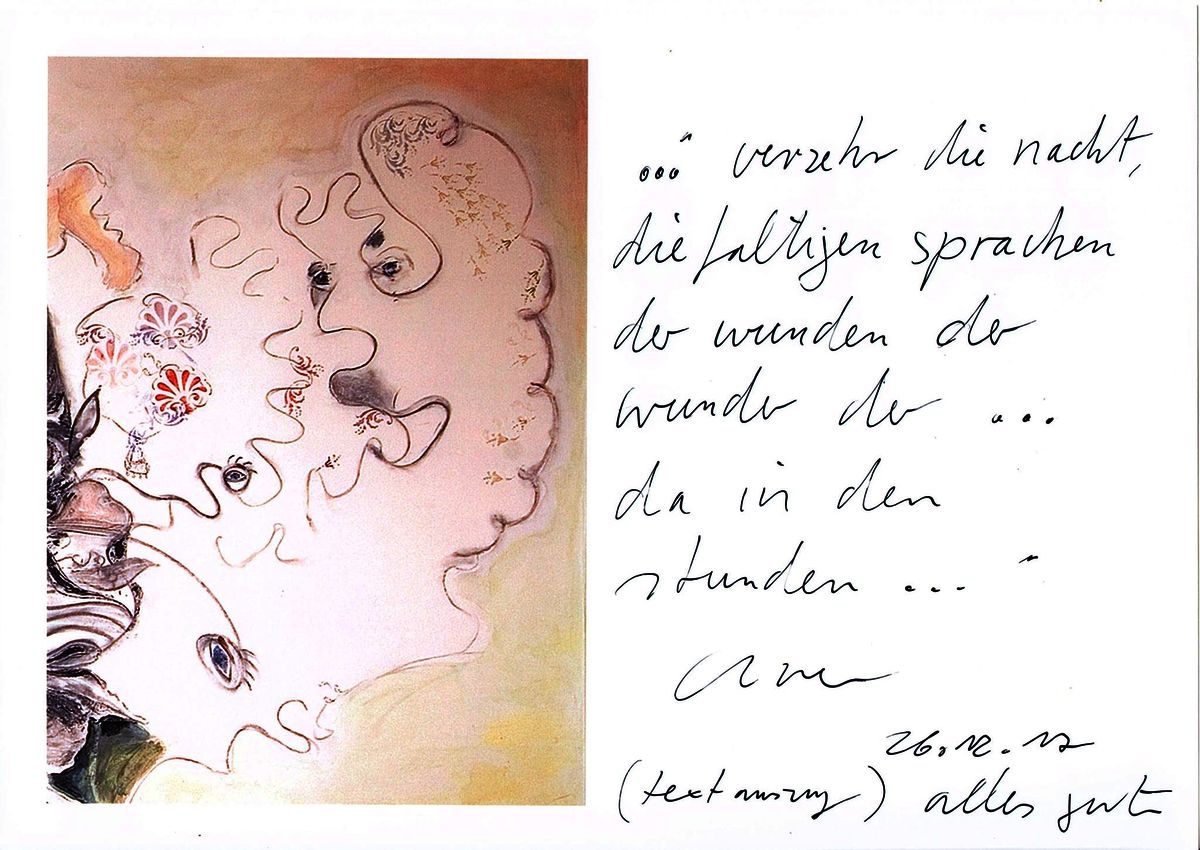 ..." verzehr die nacht,
die faltigen sprachen
der wunden der
wunder der ...
da in den
stunden ..."
26.12.17
(textauszug) alles gute